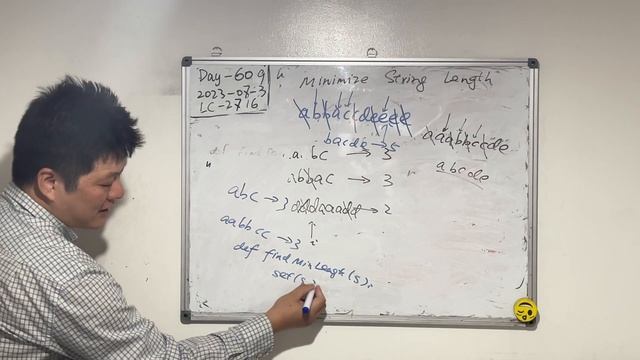 Day-609
2023-07-3
LC-2716
Minimize String Length
abbaccdeeede
aaabbccde
bacde → 5
abcde
a bc → 3
abbac → 3
abc → 3
dddaaadd → 2
i
aabbcc → 3
def findMinLength(s):
set(s)